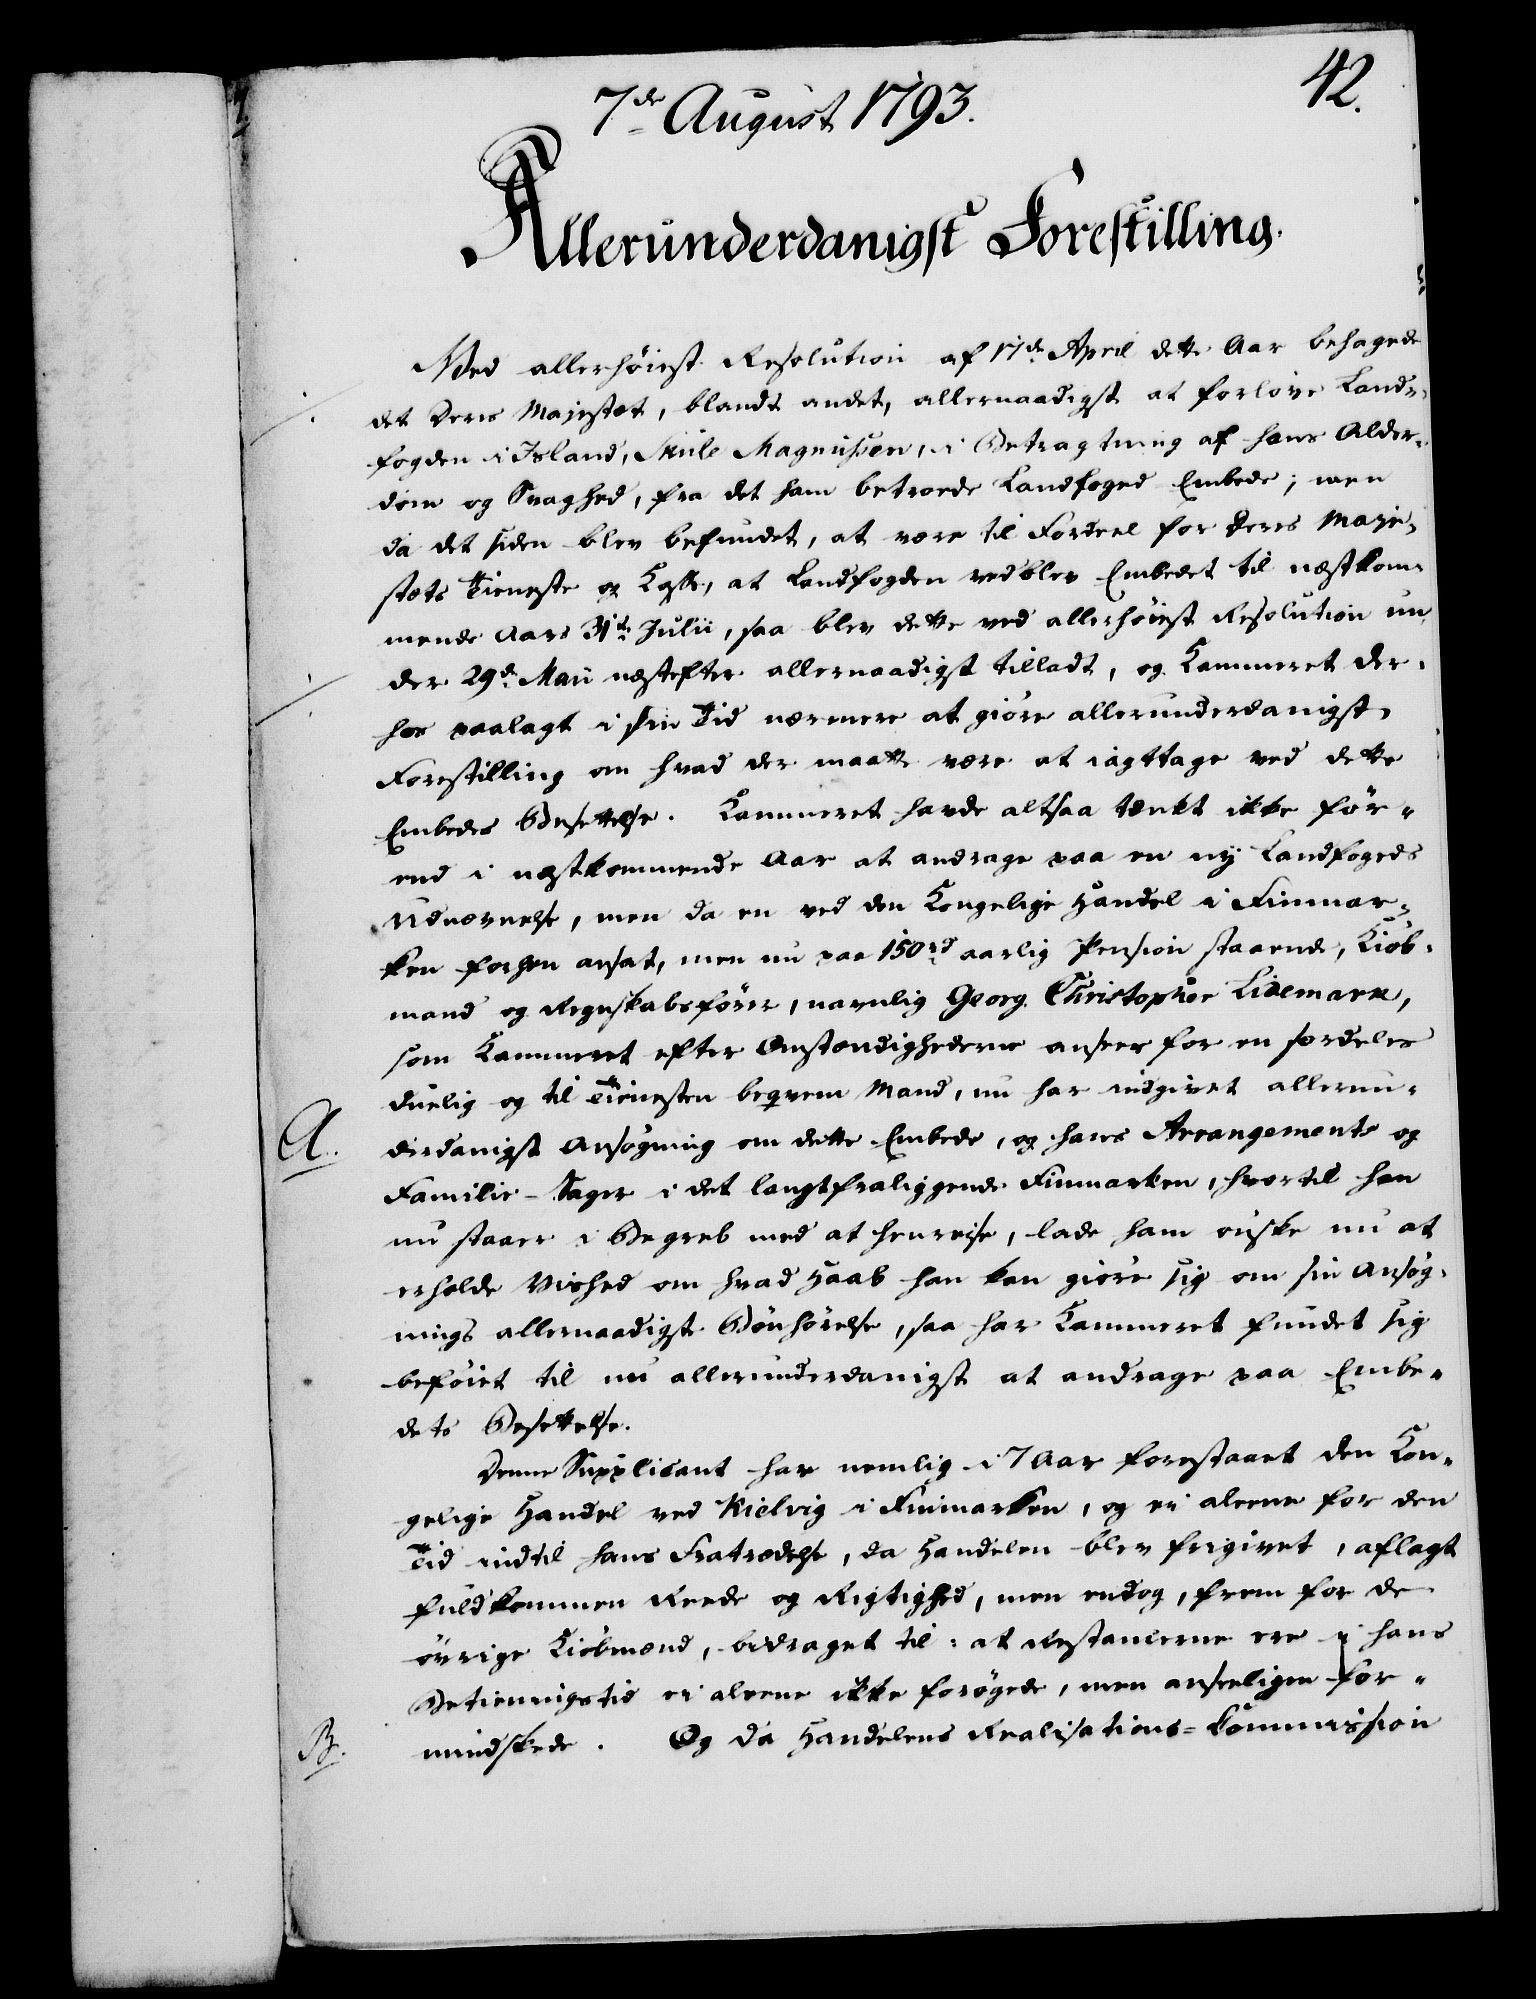 42.
7de August 1793.
Allerunderdanigst Forestilling.
Med allerhöiest Resolution af 17de April dette Aar behagede
det Deres Majestæt, blandt andet, allernaadigst at forlöve Land-
fogden i Island, Skule Magnussen, i Betragtning af hans Alder-
dom og Svaghed, fra det ham betroede Landfoged Embede; men
da det siden blev befundet, at være til Fordeel for Deres Maje-
stæts Tieneste og Casse, at Landfogden vedblev Embedet til næstkom-
mende Aars 31te Julii, saa blev dette ved allerhöiest Resolution un-
der 29de Maii næstefter allernaadigst tilladt, og Kammeret der-
hos paalagt i sin Tid nærmere at giöre allerunderdanigst
Forestilling om hvad der maatte være at iagttage ved dette
Embedes Besettelse. Kammeret havde altsaa tænkt ikke för-
end i næstkommende Aar at andrage paa en ny Landfogeds
Udnævnelse, men da en ved den Kongelige Handel i Finmar-
ken forhen ansat, men nu paa 150rd aarlig Pension staaende, Kiöb-
mand og Regnskabsförer, navnlig Georg Christopher Lidemark,
som Kammeret efter Omstændighederne anseer for en særdeles
duelig og til Tienesten beqvem Mand, nu har indgivet allerun-
A. derdanigst Ansögning om dette Embede, og hans Arrangements og
Familie-Sager i det langtfraliggende Finmarken, hvortil han
nu staaer i Begreb med at henreise, lade ham önske nu at
erholde Vished om hvad Haab han kan giöre sig om sin Ansög-
nings allernaadigste Bönhörelse, saa har Kammeret fundet sig
beföiet til nu allerunderdanigst at andrage paa Embe-
dets Besettelse.
Denne Supplicant har nemlig i 7 Aar forestaaet den Kon-
gelige Handel ved Kielvig i Finmarken, og ei aleene for den
Tid indtil hans Fratrædelse, da Handelen blev frigivet, aflagt
fuldkommen Reede og Rigtighed, men endog, frem for de
övrige Kiöbmænd, bidraget til: at Restancerne ere i hans
Betieningstid ei aleene ikke forögede, men anseeligen for-
B. mindskede. Og da Handelens Realisations-Commission